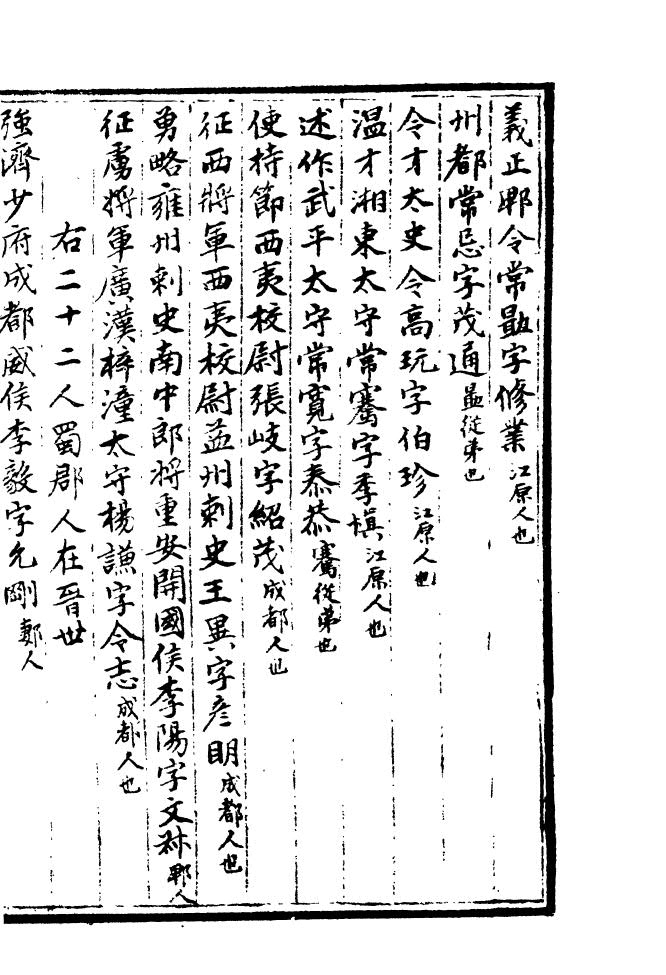 義正郫令常勗字修業江原人也
州都常忌字茂通勗從弟也
令才太史令高玩字伯珍江原人也
温才湘東太守常騫字季慎江原人也
述作武平太守常寛字泰恭騫從弟也
使持節西夷校尉張岐字紹茂成都人也
征西將軍西夷校尉益州刺史王異字彦明成都人也
勇略雍州刺史南中郎將重安開國侯李陽字文𥘵郫人
征虜將軍廣漢梓潼太守楊謙字令志成都人也
右二十二人蜀郡人在晉世
強濟少府成都威侯李毅字允剛郪人